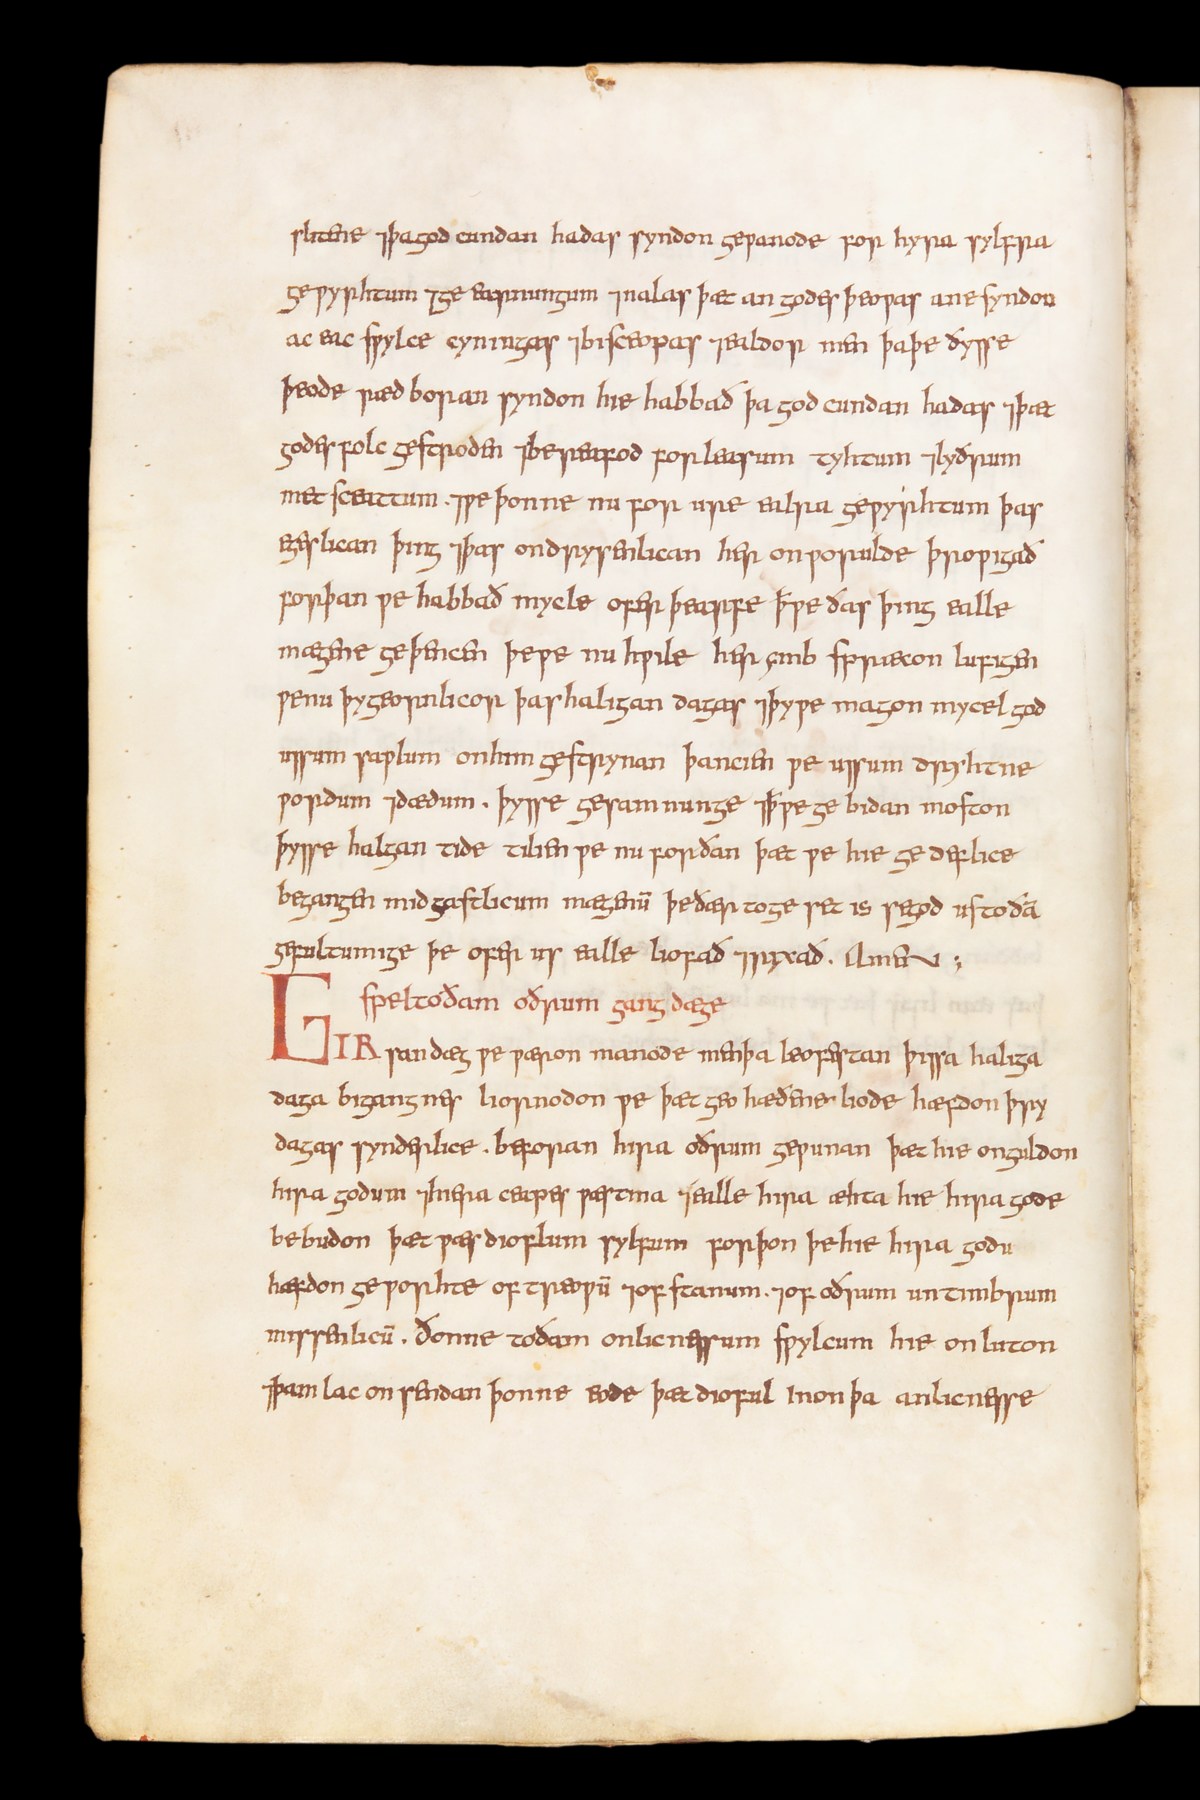 slitene ⁊ þa god cundan hadas syndon gewanode for hyra sylfra
gewyrhtum ⁊ ge earnungum ⁊ nalas þæt an godes þeowas ane syndon
ac eac swylce cyningas ⁊ bisceopas ⁊ ealdor men þa þe ðysse
þeode ræd boran syndon hie habbað þa god cundan hadas ⁊ þæt
godes folc gestroden ⁊ bereafod for leasum tyhtum ⁊ lyðrum
met sceattum . ⁊ we þonne nu for ure ealra gewyrhtum þas
egeslican þing ⁊ þas ondrysenlican her on worulde þrowigað
forþan we habbað mycle ofer þearfe ꝥ we ðas þing ealle
mægene geþencen þe we nu hwile her ymb spræcon lufigen
we nu þy geornlicor þas haligan dagas ⁊ þy we magon mycel god
ussum sawlum on him gestrynan þancien we ussum dryhtne
wordum ⁊ dædum . þysse gesamnunge ⁊ ꝥ we ge bidan moston
þysse halgan tide tilien we nu forðan þæt we hie ge deflice
begangen mid gastlicum mægenū þe ðær to ge set is se god us to ðā
gefultumige þe ofer us ealle liofað ⁊ rixað . Amen ;
spel to ðam oðrum gang dæge
GIR san dæg we wæron manode men þa leofestan þissa haliga
daga bigang nes liornodon we þæt geo hæðene liode hæfdon þry
dagas synderlice . beforan hira oðrum gewunan þæt hie onguldon
hira godum ⁊ hiera ceapes wæstma ⁊ ealle hira æhta hie hira gode
bebudon þæt wæs dioflum sylfum forþon þe hie hira godu
hæfdon geworhte of treowū ⁊ of stanum . ⁊ of oðrum untimbrum
missenlicū . ðonne to ðam onlicnessum swylcum hie on luton
⁊ þam lac on sendan þonne eode þæt dioful inon þa anlicnesse